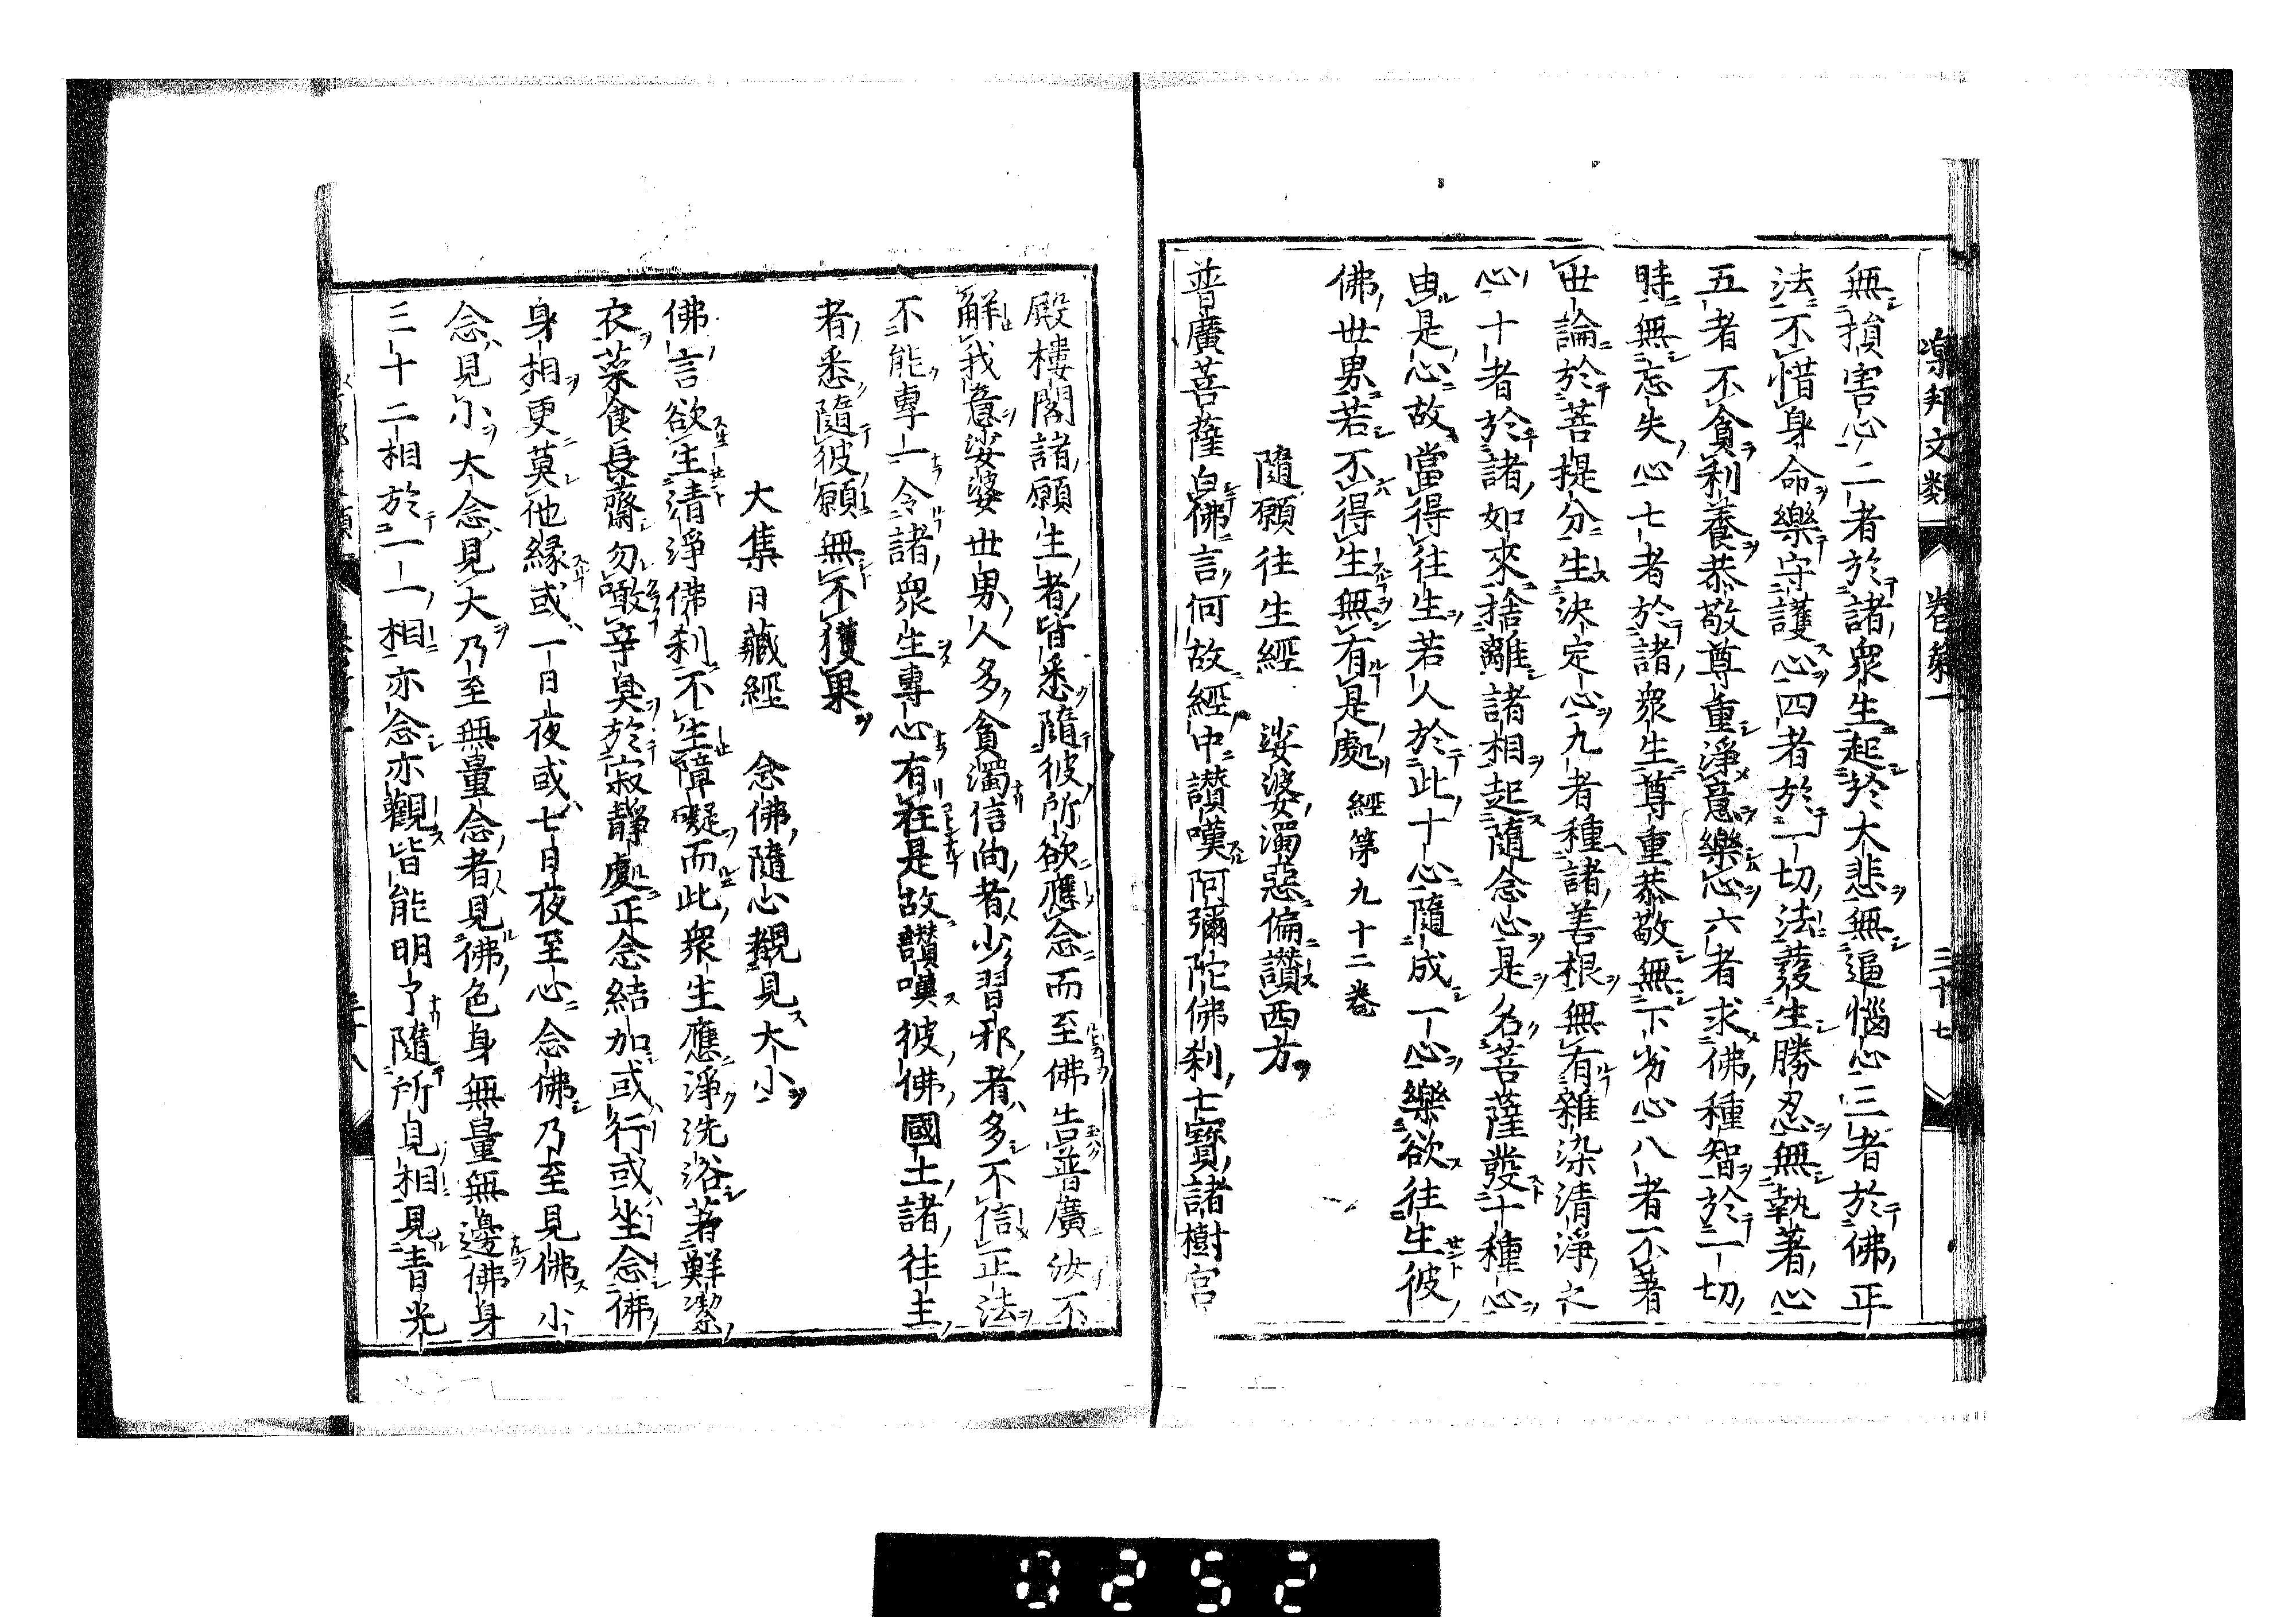 樂邦文類 卷第一 三十七
無損害心二者於諸衆生起於大悲無逼惱心三者於佛正
法不惜身命樂守護心四者於一切法發生勝忍無執著心
五者不貪利養恭敬尊重淨意樂心六者求佛種智於一切
時無忘失心七者於諸衆生尊重恭敬無下劣心八者不著
世論於菩提分生決定心九者種諸善根無有雜染清淨之
心十者於諸如來捨離諸相起隨念心是名菩薩發十種心
由是心故當得往生若人於此十心隨成一心樂欲往生彼
佛世界若不得生無有是處經第九十二卷
隨願往生經 娑婆濁惡偏讃西方
普廣菩薩白佛言何故經中讃嘆阿彌陀佛刹七寳諸樹宮
殿樓閣諸願生者皆悉隨彼所欲應念而至佛告普廣汝不
解我意娑婆世界人多貪濁信向者少習邪者多不信正法
不能專一令諸衆生專心有在是故讃嘆彼佛國土諸往生
者悉隨彼願無不獲果
大集日藏經 念佛隨心覩見大小
佛言欲生清淨佛刹不生障礙而此衆生應淨洗浴著鮮潔
衣菜食長齋勿噉辛臭於寂靜處正念結加或行或坐念佛
身相更莫他緣或一日夜或七日夜至心念佛乃至見佛小
念見小大念見大乃至無量念者見佛色身無量無邊佛身
三十二相於一一相亦念亦觀皆能明了隨所見相見青光